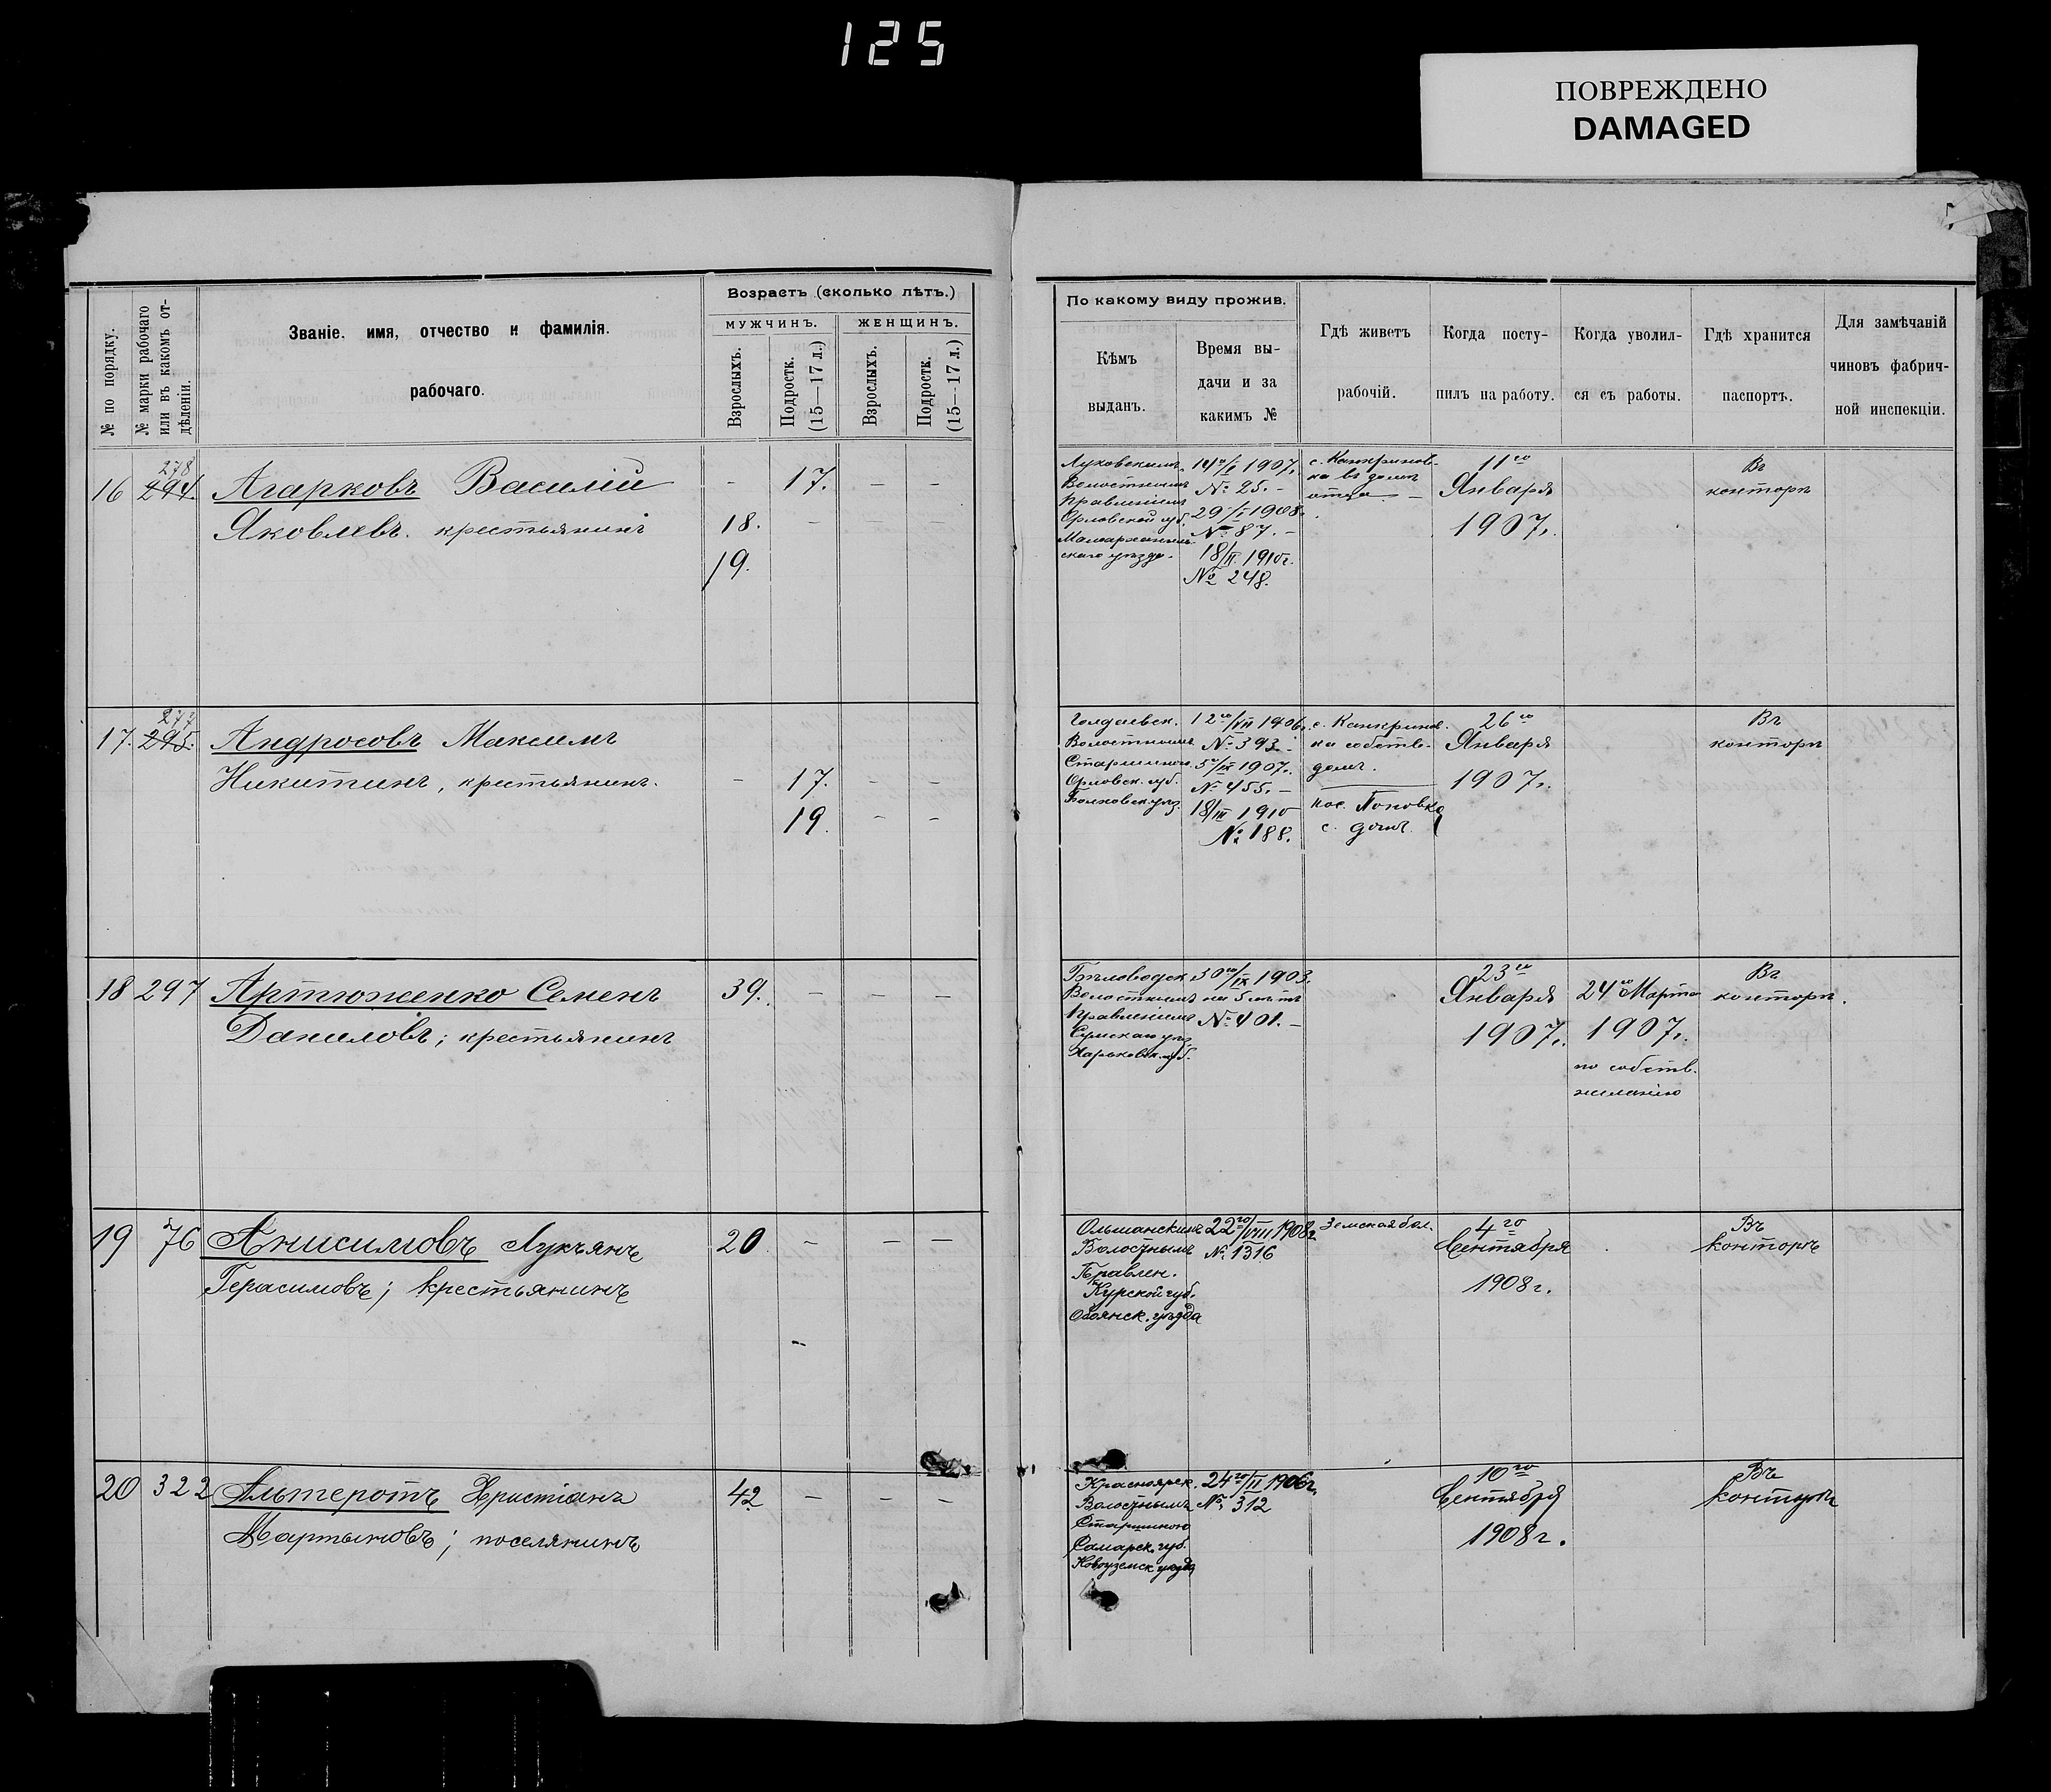 125
ПОВРЕЖДЕНО
DAMAGED
№ по порядку.
№ марки рабочаго
или въ какомъ от-
дѣленіи.
Званіе, имя, отчество и фамилія.
рабочаго.
Возрастъ (сколько лѣтъ.)
МУЖЧИНЪ.
ЖЕНЩИНЪ.
Взрослыхъ.
Подростк.
(15—17 л.)
Взрослыхъ.
Подростк.
(15—17 л.)
По какому виду прожив.
Кѣмъ
выданъ.
Время вы-
дачи и за
какимъ №
Гдѣ живетъ
рабочій.
Когда посту-
пилъ на работу.
Когда уволил-
ся съ работы.
Гдѣ хранится
паспортъ.
Для замѣчаній
чиновъ фабрич-
ной инспекціи.
278
16 294. Агарковъ Василій - 17. - -
Яковлевъ. крестьянинъ 18. - - -
19.
Волостнымъ
Правленіемъ
Орловской губ.
Малоархангель-
скаго уѣзда.
1907.
№ 25. -
29/I 1908.
№ 87. -
18/II 1910 г.
№ 248.
с. Канкринов-
ка въ домѣ
отца
11го
Января
1907.
Въ
конторѣ
277
17. 295. Андросовъ Максимъ
Никитинъ, крестьянинъ. - 17. - -
19. - -
Волостнымъ
Старшиною
Орловск. губ.
Болховск. уѣз.
12го/VII 1906.
№ 393 -
5го/IX 1907.
№ 455. -
18/III 1910
№ 188.
с. Канкринов-
ка собств.
домъ.
пос. Поповка
с. домъ.
26го
Января
1907.
Въ
конторѣ
18 297 Артюженко Семенъ 39. - - -
Даниловъ; крестьянинъ
Бѣловодск.
Волостнымъ
Правленіемъ
Сумскаго уѣз.
Харьковск. губ.
30го/IX 1903.
на 5 лѣтъ
№ 401. -
23го
Января
1907.
24го Марта
1907.
по собств.
желанію
Въ
конторѣ.
19 76 Анисимовъ Лукъянъ 20 - - -
Герасимовъ; крестьянинъ
Ольшанскимъ
Волостнымъ
Правлен.
Курской губ.
Обоянск. уѣзда
22го/VIII 1908 г.
№ 1316
Земская бол.
4го
Сентября
1908 г.
Въ
конторѣ
20 322 Альтеротъ Христіанъ 42 - - -
Мартыновъ; поселянинъ
Красноярск.
Волостнымъ
Старшиною
Самарск. губ.
Новоузенск уѣзда
24го/II 1906 г.
№ 312
10го
Сентября
1908 г.
Въ
конторѣ